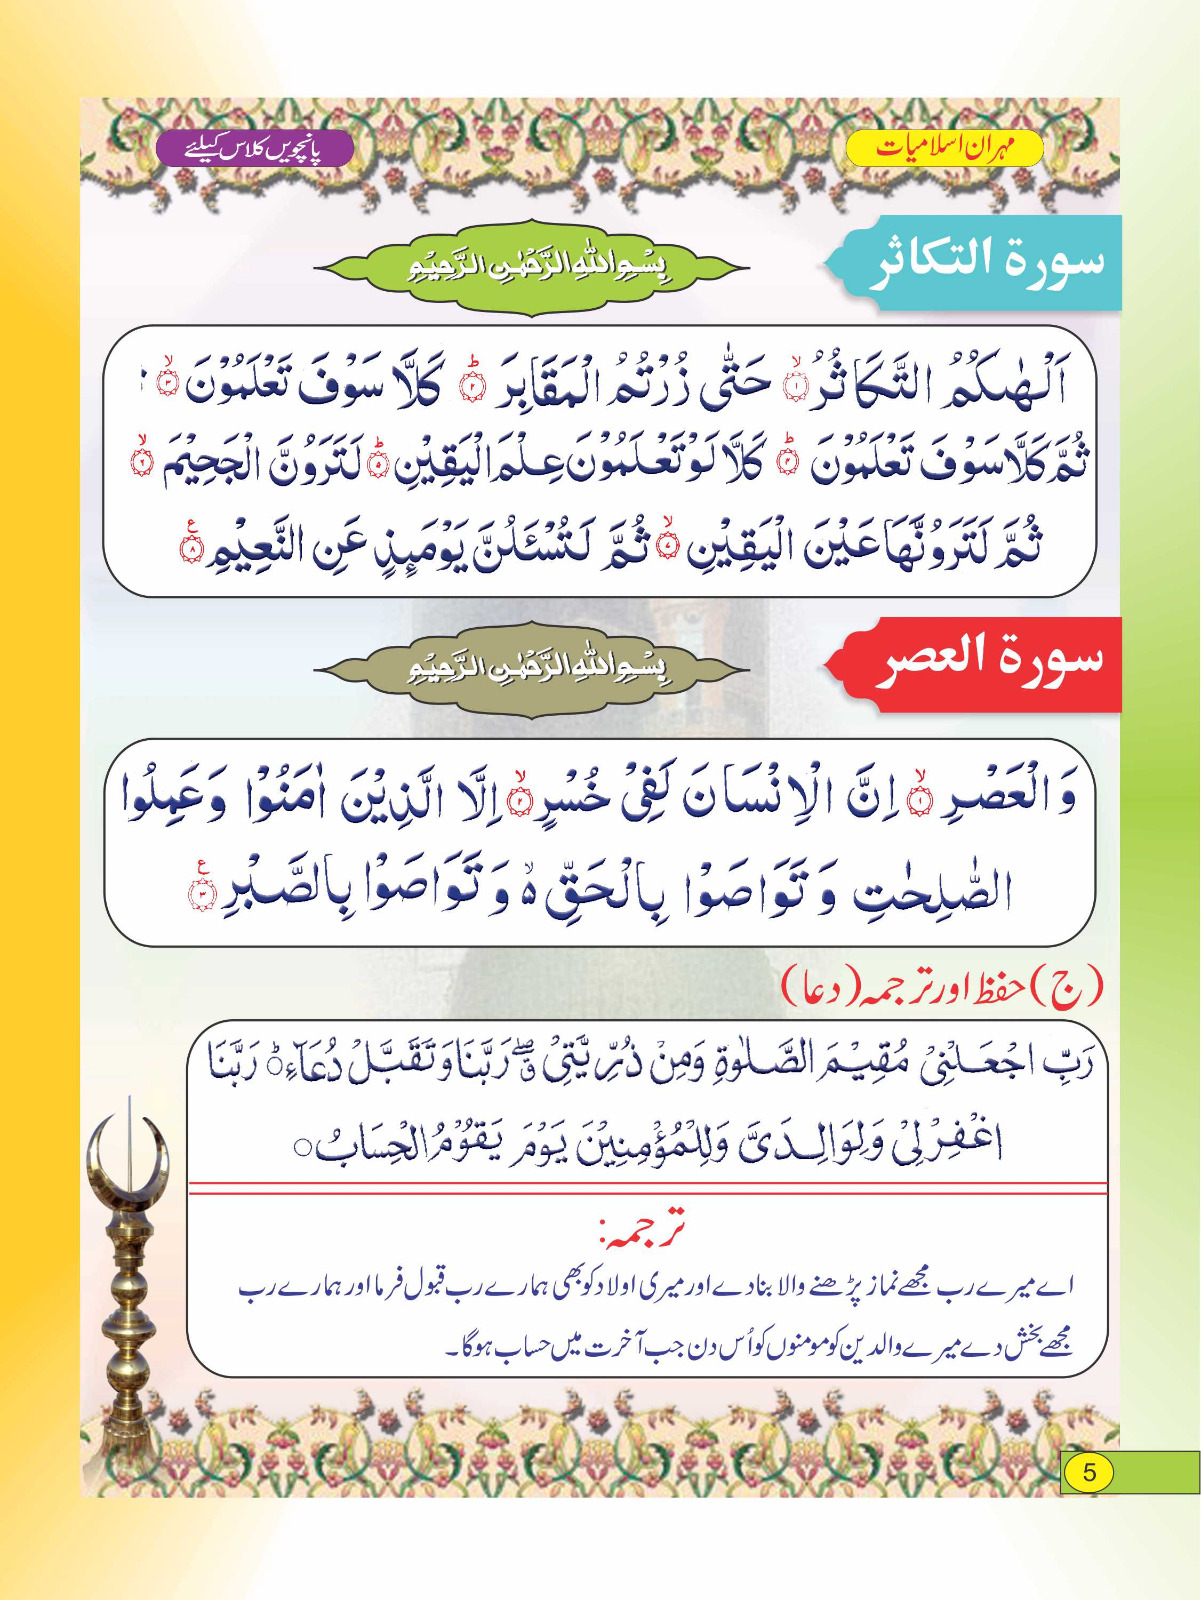 مہران اسلامیات
پانچویں کلاس کیلئے
سورة التكاثر
بِسْمِ اللهِ الرَّحْمٰنِ الرَّحِيْمِ
اَلْهٰىكُمُ التَّكَاثُرُ ۙ﴿۱﴾ حَتّٰى زُرْتُمُ الْمَقَابِرَ ؕ﴿۲﴾ كَلَّا سَوْفَ تَعْلَمُوْنَ ۙ﴿۳﴾
ثُمَّ كَلَّا سَوْفَ تَعْلَمُوْنَ ؕ﴿۴﴾ كَلَّا لَوْ تَعْلَمُوْنَ عِلْمَ الْيَقِيْنِ ؕ﴿۵﴾ لَتَرَوُنَّ الْجَحِيْمَ ۙ﴿۶﴾
ثُمَّ لَتَرَوُنَّهَا عَيْنَ الْيَقِيْنِ ۙ﴿۷﴾ ثُمَّ لَتُسْـَٔلُنَّ يَوْمَىِٕذٍ عَنِ النَّعِيْمِ ﴿۸﴾ ع
سورة العصر
بِسْمِ اللهِ الرَّحْمٰنِ الرَّحِيْمِ
وَ الْعَصْرِ ۙ﴿۱﴾ اِنَّ الْاِنْسَانَ لَفِيْ خُسْرٍ ۙ﴿۲﴾ اِلَّا الَّذِيْنَ اٰمَنُوْا وَ عَمِلُوا
الصّٰلِحٰتِ وَ تَوَاصَوْا بِالْحَقِّ ۙ۬ وَ تَوَاصَوْا بِالصَّبْرِ ﴿۳﴾ ع
(ج) حفظ اور ترجمہ (دعا)
رَبِّ اجْعَلْنِيْ مُقِيْمَ الصَّلٰوةِ وَمِنْ ذُرِّيَّتِيْ ۖق رَبَّنَا وَتَقَبَّلْ دُعَآءِ ○ؕ رَبَّنَا
اغْفِرْ لِيْ وَلِوَالِدَيَّ وَلِلْمُؤْمِنِيْنَ يَوْمَ يَقُوْمُ الْحِسَابُ ○
ترجمہ:
اے میرے رب مجھے نماز پڑھنے والا بنا دے اور میری اولاد کو بھی ہمارے رب قبول فرما اور ہمارے رب
مجھے بخش دے میرے والدین کو مومنوں کو اُس دن جب آخرت میں حساب ہوگا۔
5